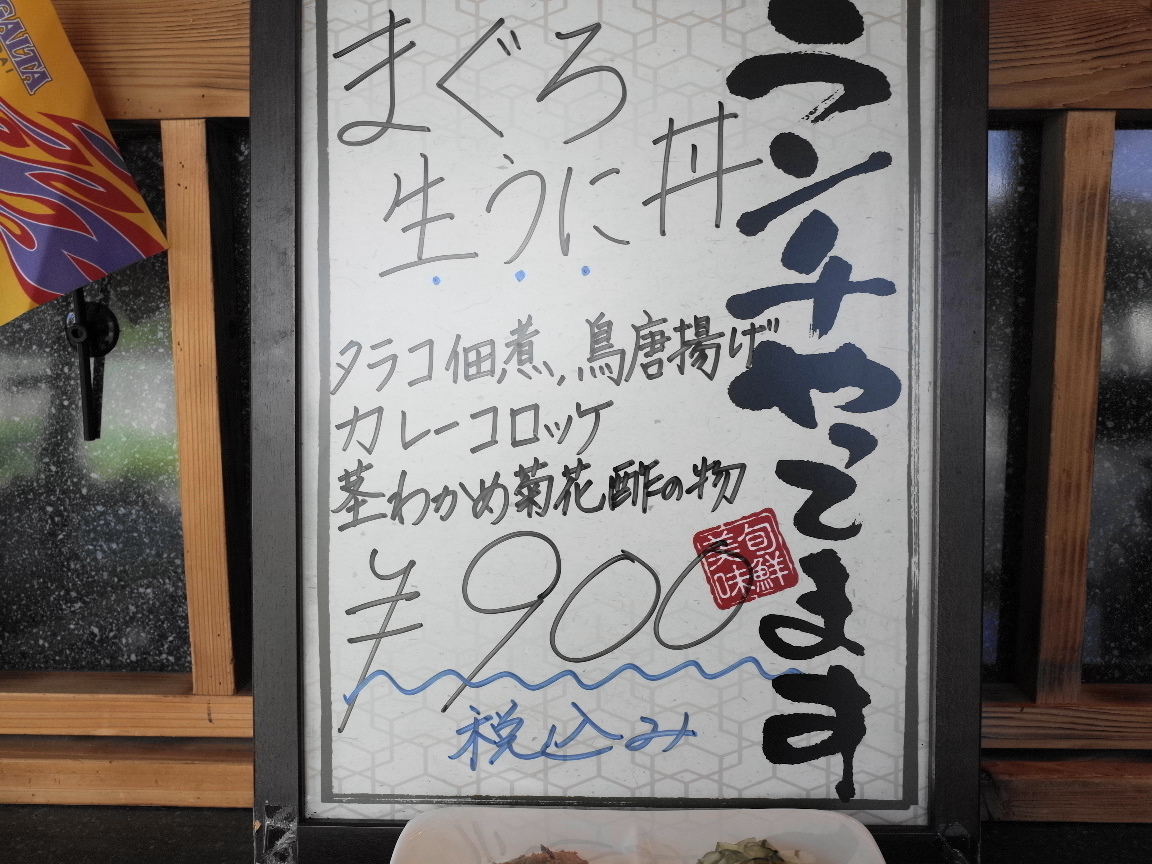 ランチやってます
まぐろ
生うに丼
タラコ佃煮,鳥唐揚げ
カレーコロッケ
茎わかめ菊花酢の物
¥900
税込み
旬鮮
美味